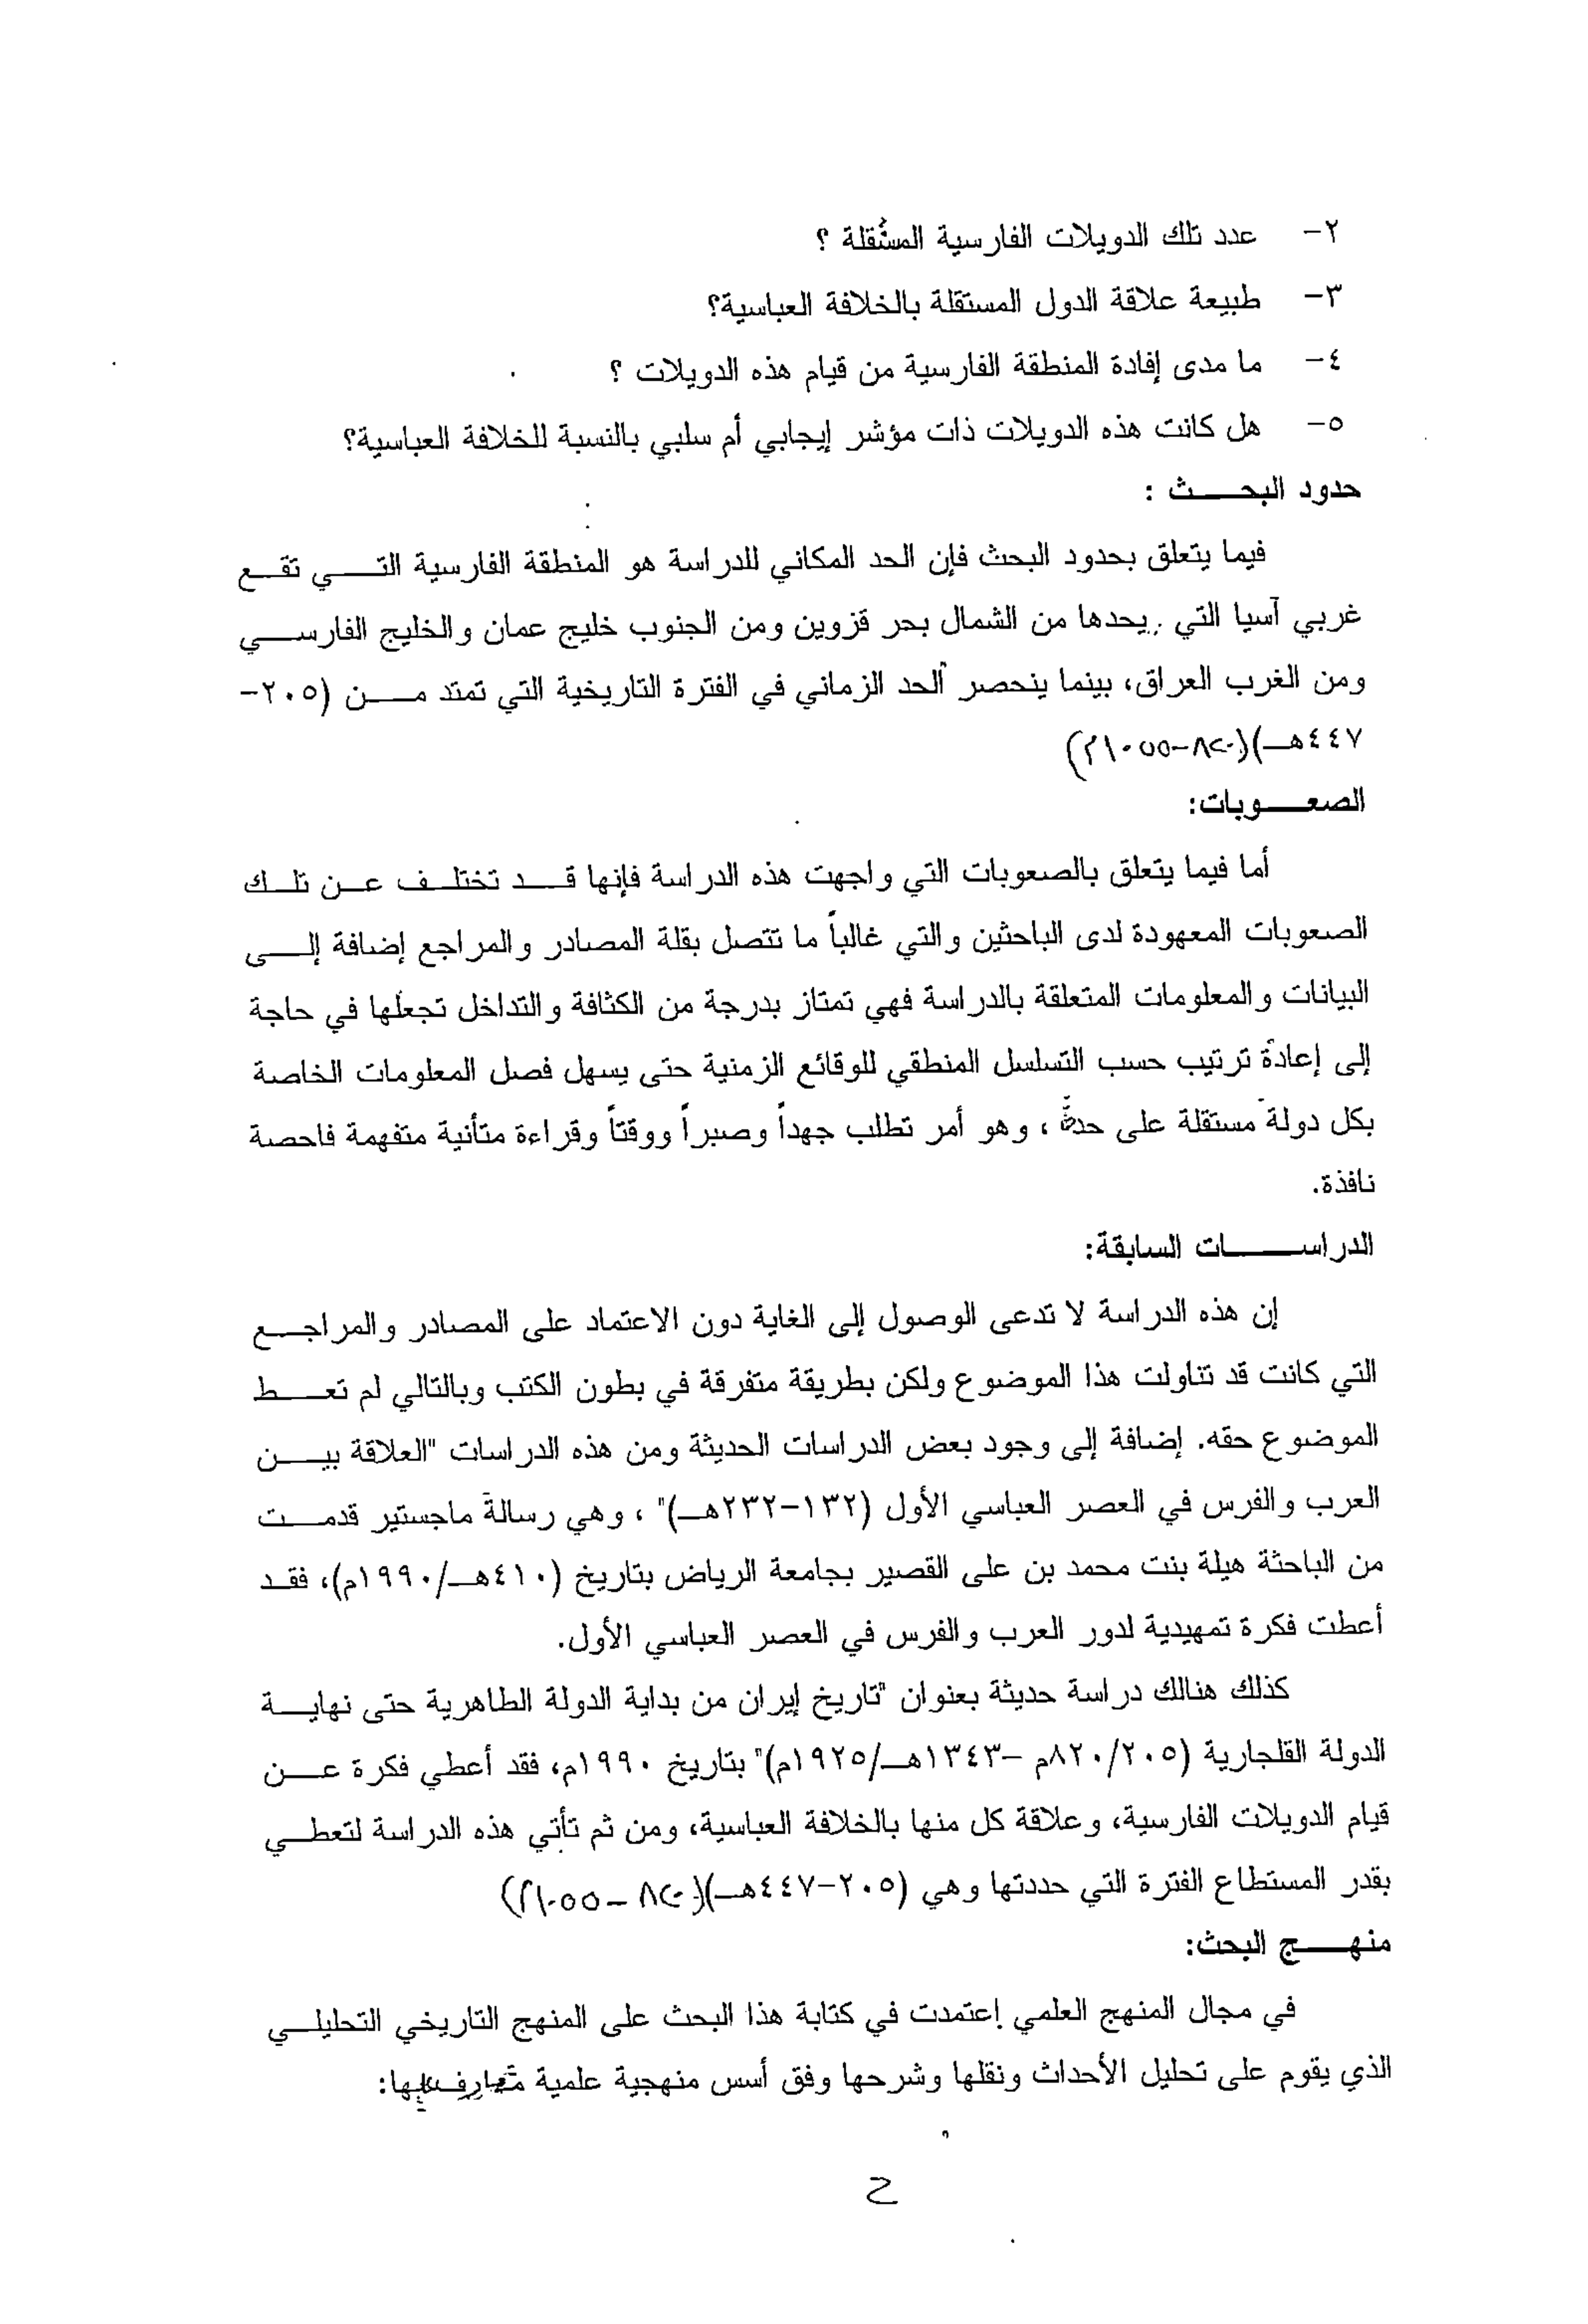 ٢- عدد تلك الدويلات الفارسية المستقلة ؟
٣- طبيعة علاقة الدول المستقلة بالخلافة العباسية؟
٤- ما مدى إفادة المنطقة الفارسية من قيام هذه الدويلات ؟
٥- هل كانت هذه الدويلات ذات مؤشر إيجابي أم سلبي بالنسبة للخلافة العباسية؟
حدود البحث :
فيما يتعلق بحدود البحث فإن الحد المكاني للدراسة هو المنطقة الفارسية التي تقع
غربي آسيا التي يحدها من الشمال بحر قزوين ومن الجنوب خليج عمان والخليج الفارسي
ومن الغرب العراق، بينما ينحصر الحد الزماني في الفترة التاريخية التي تمتد من (٢٠٥-
٤٤٧هـ)(٨٢٠-١٠٥٥م)
الصعوبات:
أما فيما يتعلق بالصعوبات التي واجهت هذه الدراسة فإنها قد تختلف عن تلك
الصعوبات المعهودة لدى الباحثين والتي غالباً ما تتصل بقلة المصادر والمراجع إضافة إلى
البيانات والمعلومات المتعلقة بالدراسة فهي تمتاز بدرجة من الكثافة والتداخل تجعلها في حاجة
إلى إعادة ترتيب حسب التسلسل المنطقي للوقائع الزمنية حتى يسهل فصل المعلومات الخاصة
بكل دولة مستقلة على حدة ، وهو أمر تطلب جهداً وصبراً ووقتاً وقراءة متأنية متفهمة فاحصة
نافذة.
الدراسات السابقة:
إن هذه الدراسة لا تدعى الوصول إلى الغاية دون الاعتماد على المصادر والمراجع
التي كانت قد تناولت هذا الموضوع ولكن بطريقة متفرقة في بطون الكتب وبالتالي لم تعط
الموضوع حقه. إضافة إلى وجود بعض الدراسات الحديثة ومن هذه الدراسات "العلاقة بين
العرب والفرس في العصر العباسي الأول (١٣٢-٢٣٢هـ)" ، وهي رسالة ماجستير قدمت
من الباحثة هيلة بنت محمد بن على القصير بجامعة الرياض بتاريخ (٤١٠هـ/١٩٩٠م)، فقد
أعطت فكرة تمهيدية لدور العرب والفرس في العصر العباسي الأول.
كذلك هنالك دراسة حديثة بعنوان "تاريخ إيران من بداية الدولة الطاهرية حتى نهاية
الدولة القلجارية (٨٢٠/٢٠٥م -١٣٤٣هـ/١٩٢٥م)" بتاريخ ١٩٩٠م، فقد أعطي فكرة عن
قيام الدويلات الفارسية، وعلاقة كل منها بالخلافة العباسية، ومن ثم تأتي هذه الدراسة لتعطي
بقدر المستطاع الفترة التي حددتها وهي (٢٠٥-٤٤٧هـ)(٨٢٠ - ١٠٥٥م)
منهج البحث:
في مجال المنهج العلمي إعتمدت في كتابة هذا البحث على المنهج التاريخي التحليلي
الذي يقوم على تحليل الأحداث ونقلها وشرحها وفق أسس منهجية علمية
ح